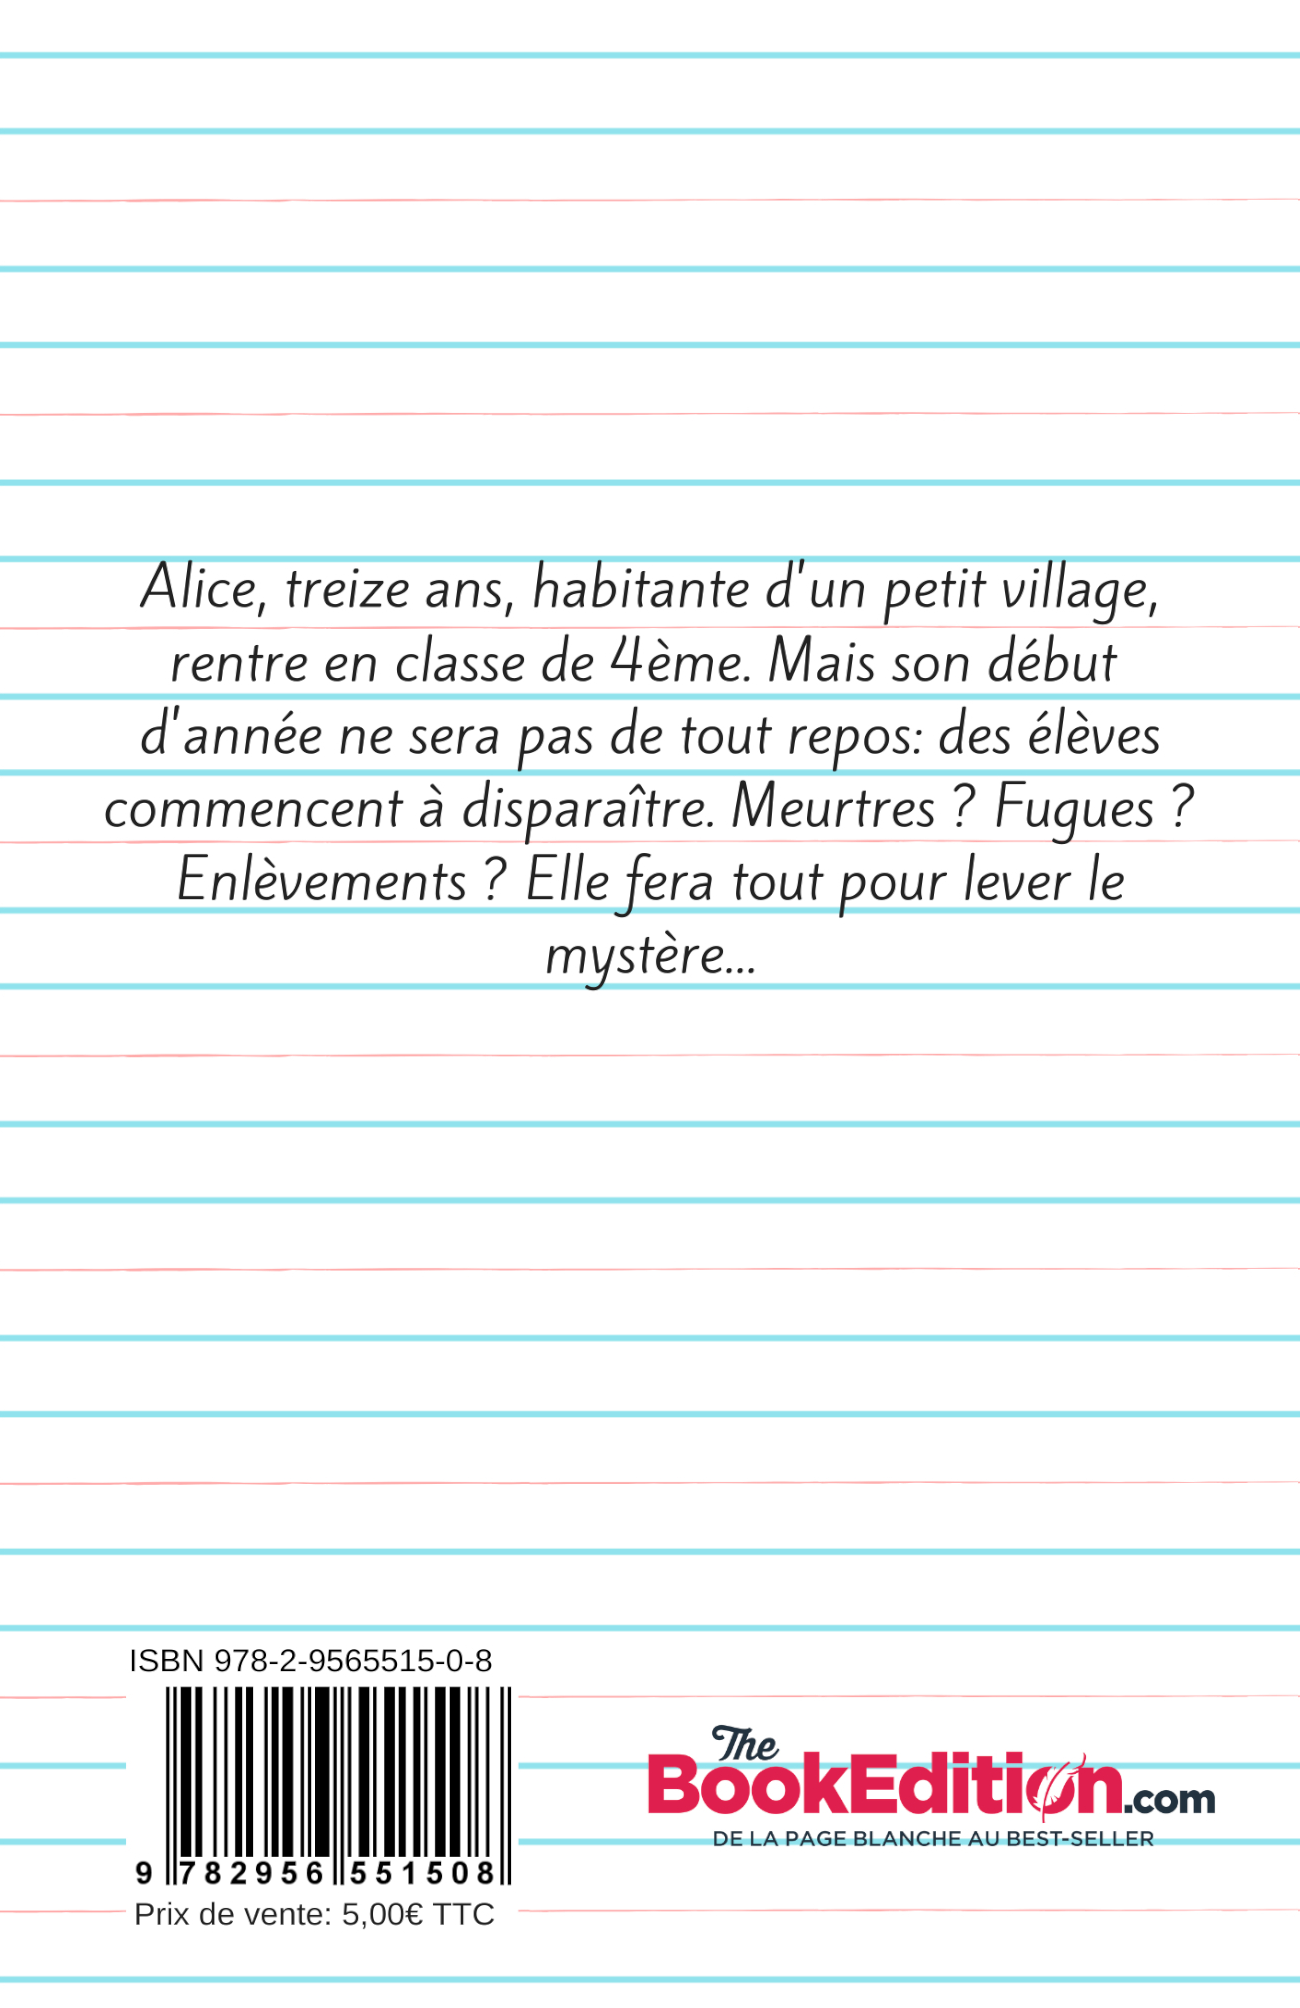 Alice, treize ans, habitante d'un petit village,
rentre en classe de 4ème. Mais son début
d'année ne sera pas de tout repos: des élèves
commencent à disparaître. Meurtres ? Fugues ?
Enlèvements ? Elle fera tout pour lever le
mystère...
ISBN 978-2-9565515-0-8
9 782956 551508
Prix de vente: 5,00€ TTC
The
BookEdition.com
DE LA PAGE BLANCHE AU BEST-SELLER